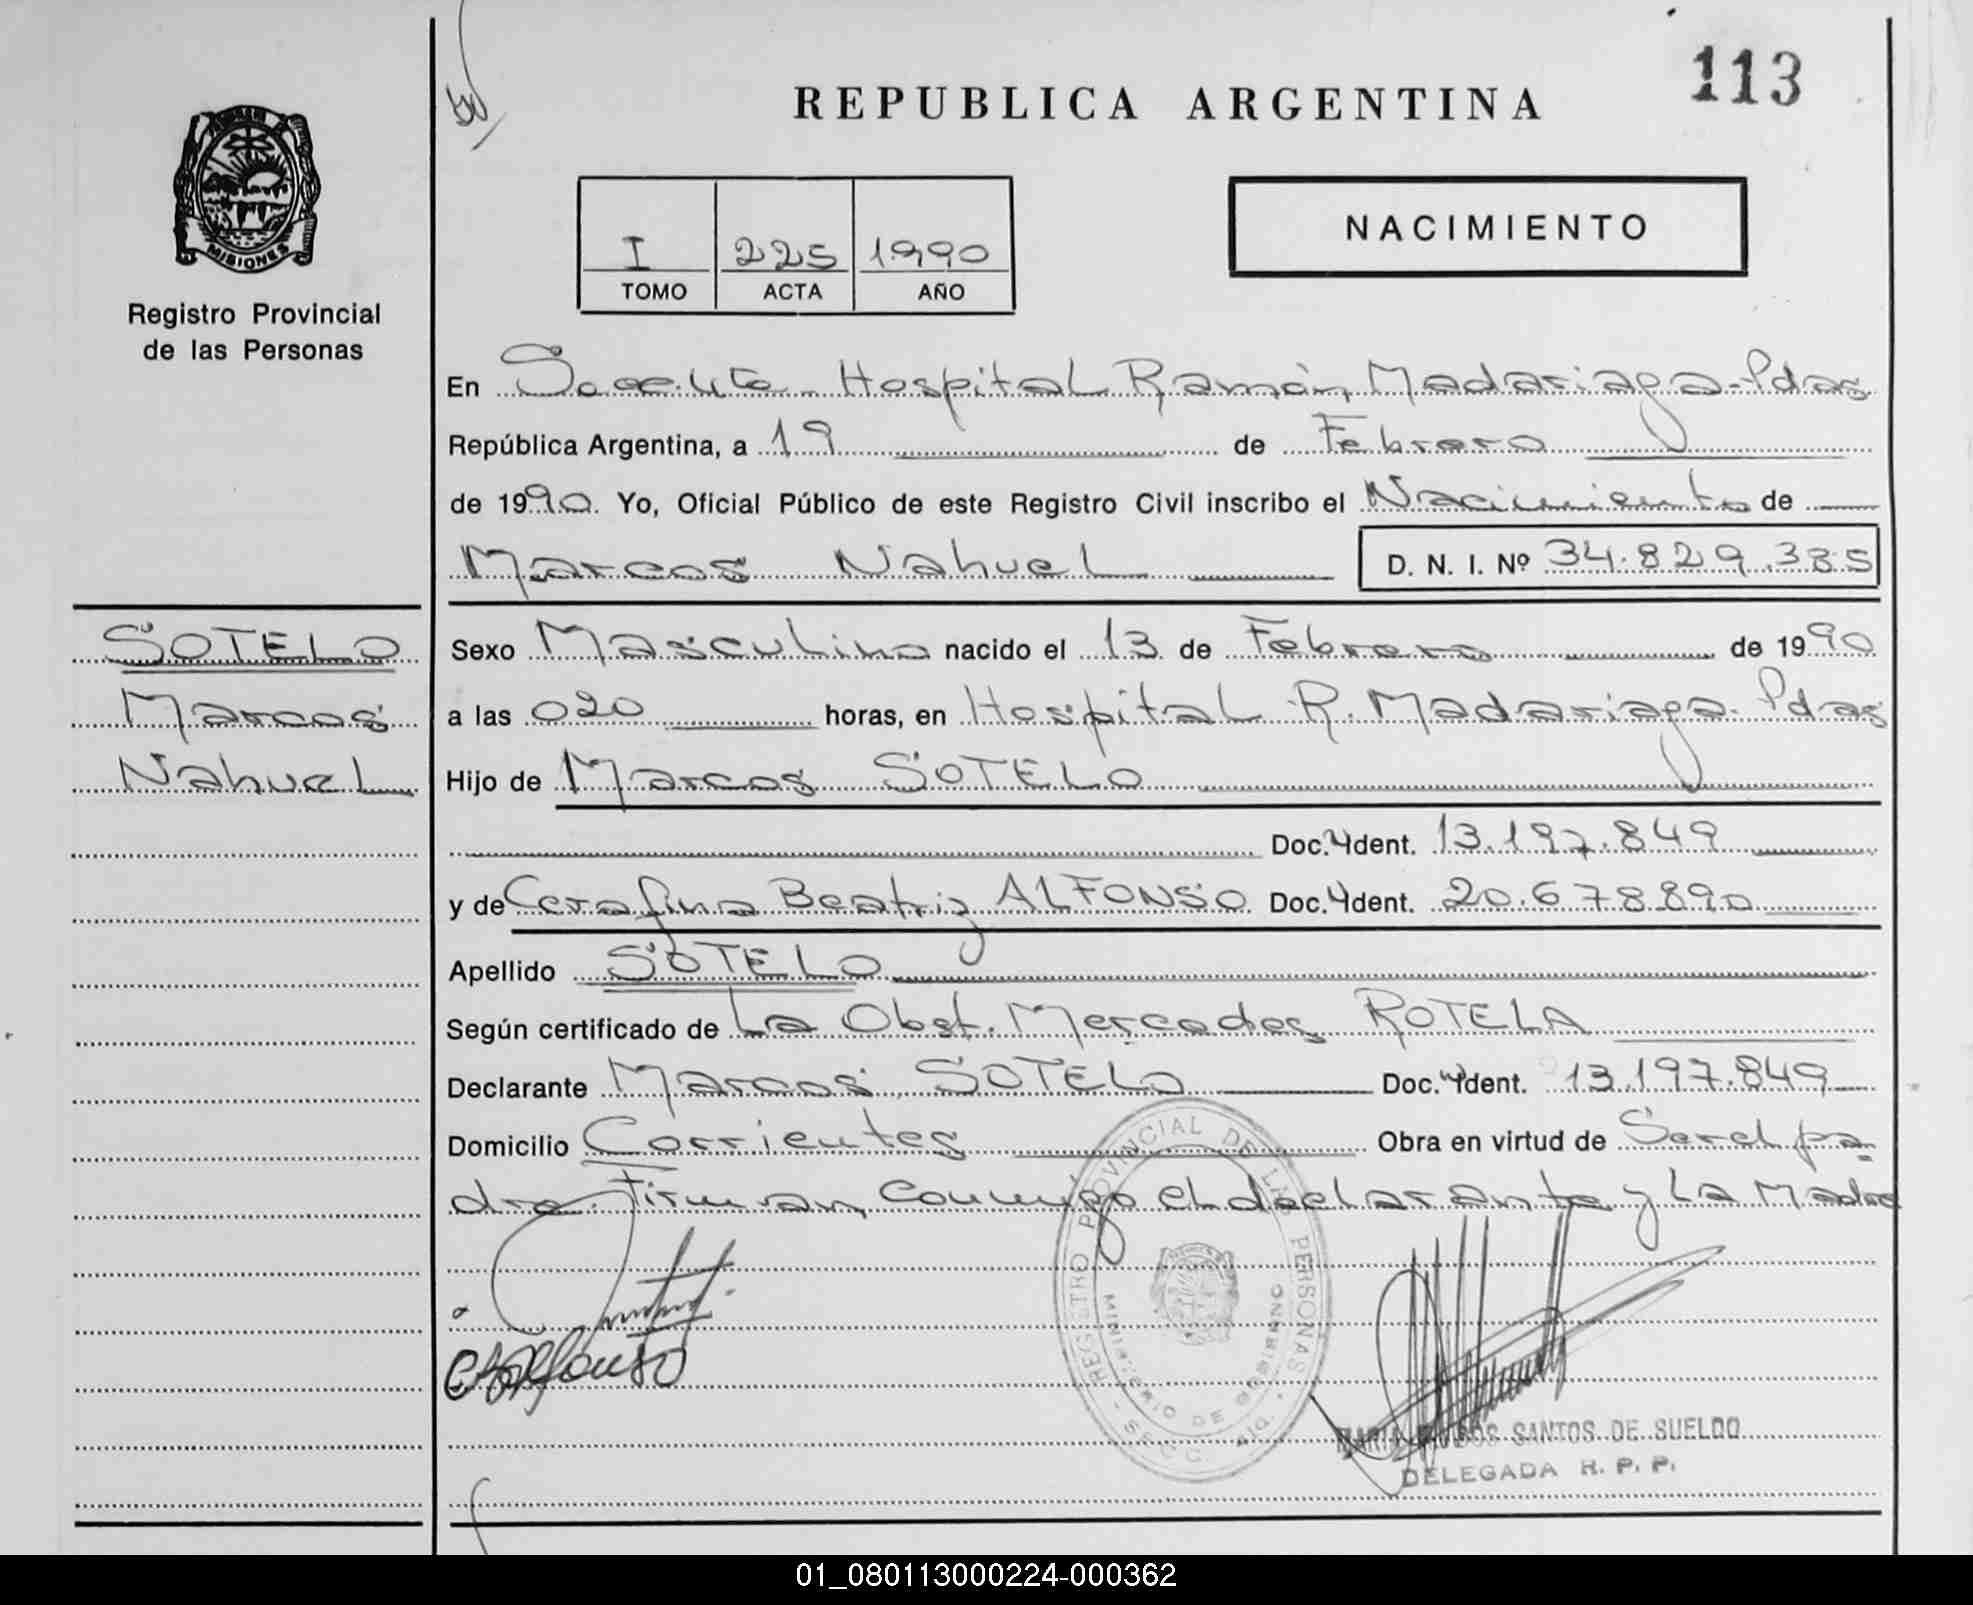 113
REPUBLICA ARGENTINA
MISIONES
Registro Provincial
de las Personas
I 225 1990
TOMO ACTA AÑO
NACIMIENTO
En Hospital Ramón Madariaga-Pdas
República Argentina, a 19 de Febrero
de 1990. Yo, Oficial Público de este Registro Civil inscribo el Nacimiento de
Marcos Nahuel D. N. I. Nº 34.829.385
SOTELO
Marcos
Nahuel
Sexo Masculino nacido el 13 de Febrero de 1990
a las 020 horas, en Hospital R. Madariaga-Pdas
Hijo de Marcos SOTELO
Doc. Ident. 13.197.849
y de Cerafina Beatriz ALFONSO Doc. Ident. 20.678.890
Apellido SOTELO
Según certificado de La Obst. Mercedes ROTELA
Declarante Marcos SOTELO Doc. Ident. 13.197.849
Domicilio Corrientes Obra en virtud de Ser el pa
dre. Firman conmigo el declarante y La Madre
REGISTRO PROVINCIAL DE LAS PERSONAS
MINISTERIO DE GOBIERNO
SANTOS DE SUELDO
DELEGADA R. P. P.
01_080113000224-000362